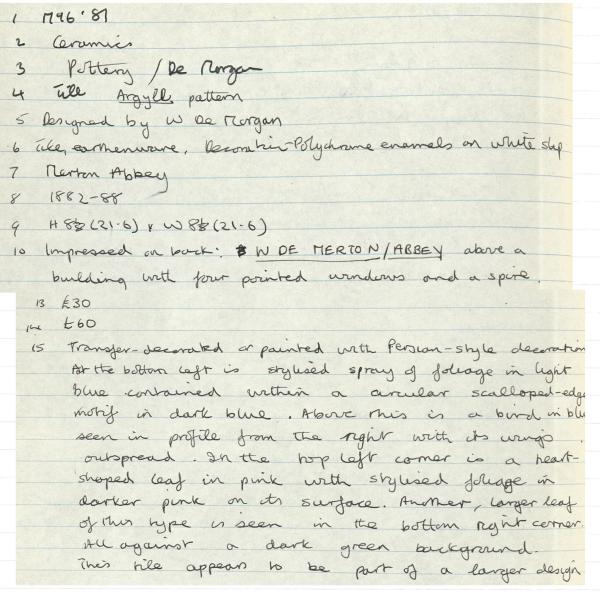 1 M96'87
2 Ceramics
3 Pottery / De Morgan
4 Tile Argyll pattern
5 Designed by W De Morgan
6 Tile, earthenware. Decoration - Polychrome enamels on white slip
7 Merton Abbey
8 1882-88
9 H 8½ (21.6) x W 8½ (21.6)
10 Impressed on back: W DE MERTON / ABBEY above a
building with four pointed windows and a spire.
13 £30
14 £60
15 Transfer-decorated or painted with Persian-style decoration
At the bottom left is stylised spray of foliage in light
blue contained within a circular scalloped-edge
motif in dark blue. Above this is a bird in blu
seen in profile from the right with its wings
outspread. In the top left corner is a heart-
shaped leaf in pink with stylised foliage in
darker pink on its surface. Another, larger leaf
of this type is seen in the bottom right corner.
All against a dark green background.
This tile appears to be part of a larger design